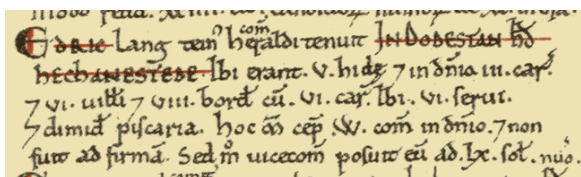 EDRIC Lang tein' heraldi com tenuit IN DODESTAN HD
HECHANESTEDE Ibi erant . v . hidę ⁊ in dn̄io . iii . car'.
⁊ vi . uitti ⁊ viii . bord' cū . vi . car'. Ibi . vi . serui.
⁊ dimid' piscaria . hoc m̄ cep' . W . com̄ in dn̄io . ⁊ non
fuit ad firmā . Sed m° uicecom̄ posuit eū ad . lx . sol'. nūo.